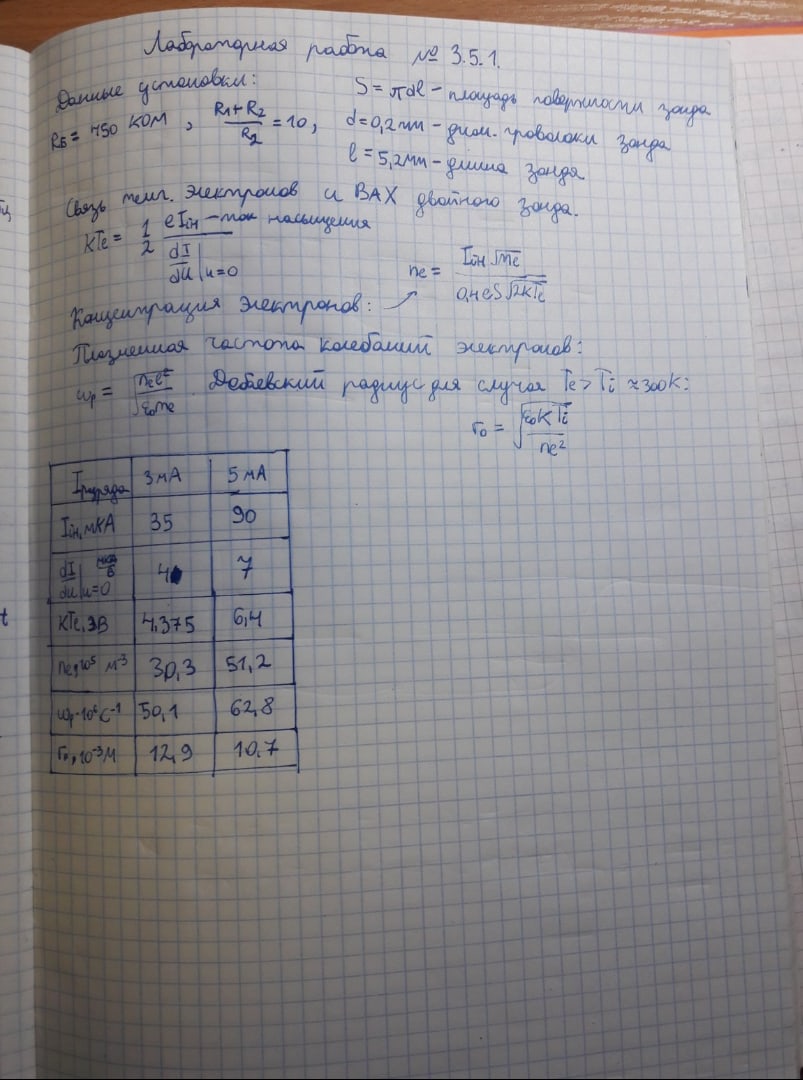 Лабораторная работа № 3.5.1.
Данные установки:
Rб = 450 кОм , (R1+R2)/R2 = 10,
S = πdl - площадь поверхности зонда
d = 0,2 мм - диам. проволоки зонда
l = 5,2 мм - длина зонда
Связь темп. электронов и ВАХ двойного зонда.
kTe = 1/2 eIiн/(dI/dU|u=0) - ток насыщения
Концентрация электронов: → ne = Iiн√me/(0,4eS√2kTe)
Плазменная частота колебаний электронов:
ωp = √(nee²/ε0me) Дебаевский радиус для случая Te > Ti ≈ 300K:
rD = √(ε0kTi/ne²)
Iразряда 3 мА 5 мА
Iiн, мкА 35 90
dI/dU|u=0 мкА/В 4 7
kTe, эВ 4.375 6,4
ne, 10⁵ м⁻³ 30,3 51,2
ωp·10⁶ с⁻¹ 50,1 62,8
rD, 10⁻³ м 12,9 10,7